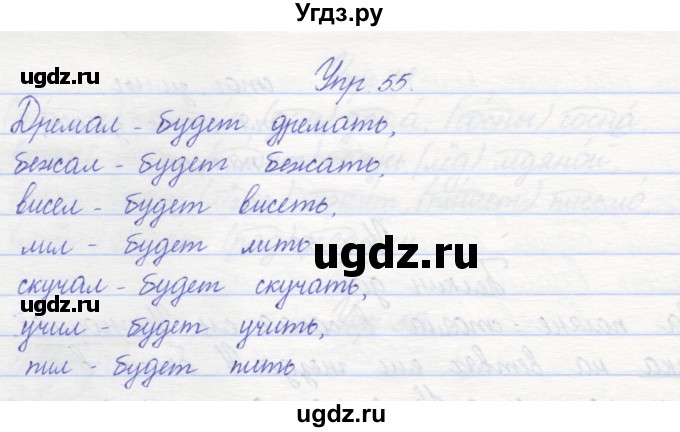 Угдз.ру
ugdz.ru
ugdz.ru
Упр. 55.
Дремал - будет дремать,
бежал - будет бежать,
висел - будет висеть,
лил - будет лить,
ugdz.ru
скучал - будет скучать,
учил - будет учить,
пил - будет пить
ugdz.ru
ugdz.ru